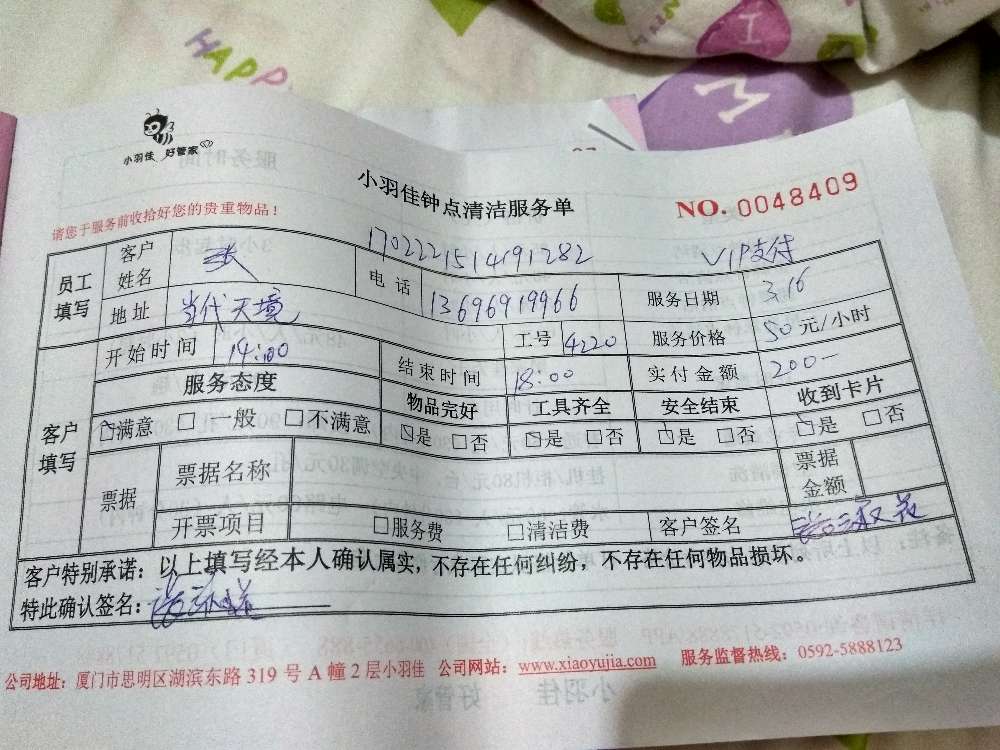 HAPP
小羽佳 好管家
小羽佳钟点清洁服务单
NO. 0048409
请您于服务前收拾好您的贵重物品！
1702221514191282
VIP支付
员工填写 客户姓名 张 电话 13696919966 服务日期 3.16
地址 当代天境 工号 4220 服务价格 50元/小时
客户填写 开始时间 14:00 结束时间 18:00 实付金额 200-
服务态度 物品完好 工具齐全 安全结束 收到卡片
☑满意 □一般 □不满意 ☑是 □否 ☑是 □否 ☑是 □否 ☑是 □否
票据 票据名称 票据金额
开票项目 □服务费 □清洁费 客户签名
客户特别承诺：以上填写经本人确认属实，不存在任何纠纷，不存在任何物品损坏。
特此确认签名：
公司地址：厦门市思明区湖滨东路 319 号 A 幢 2 层小羽佳 公司网站：www.xiaoyujia.com 服务监督热线：0592-5888123